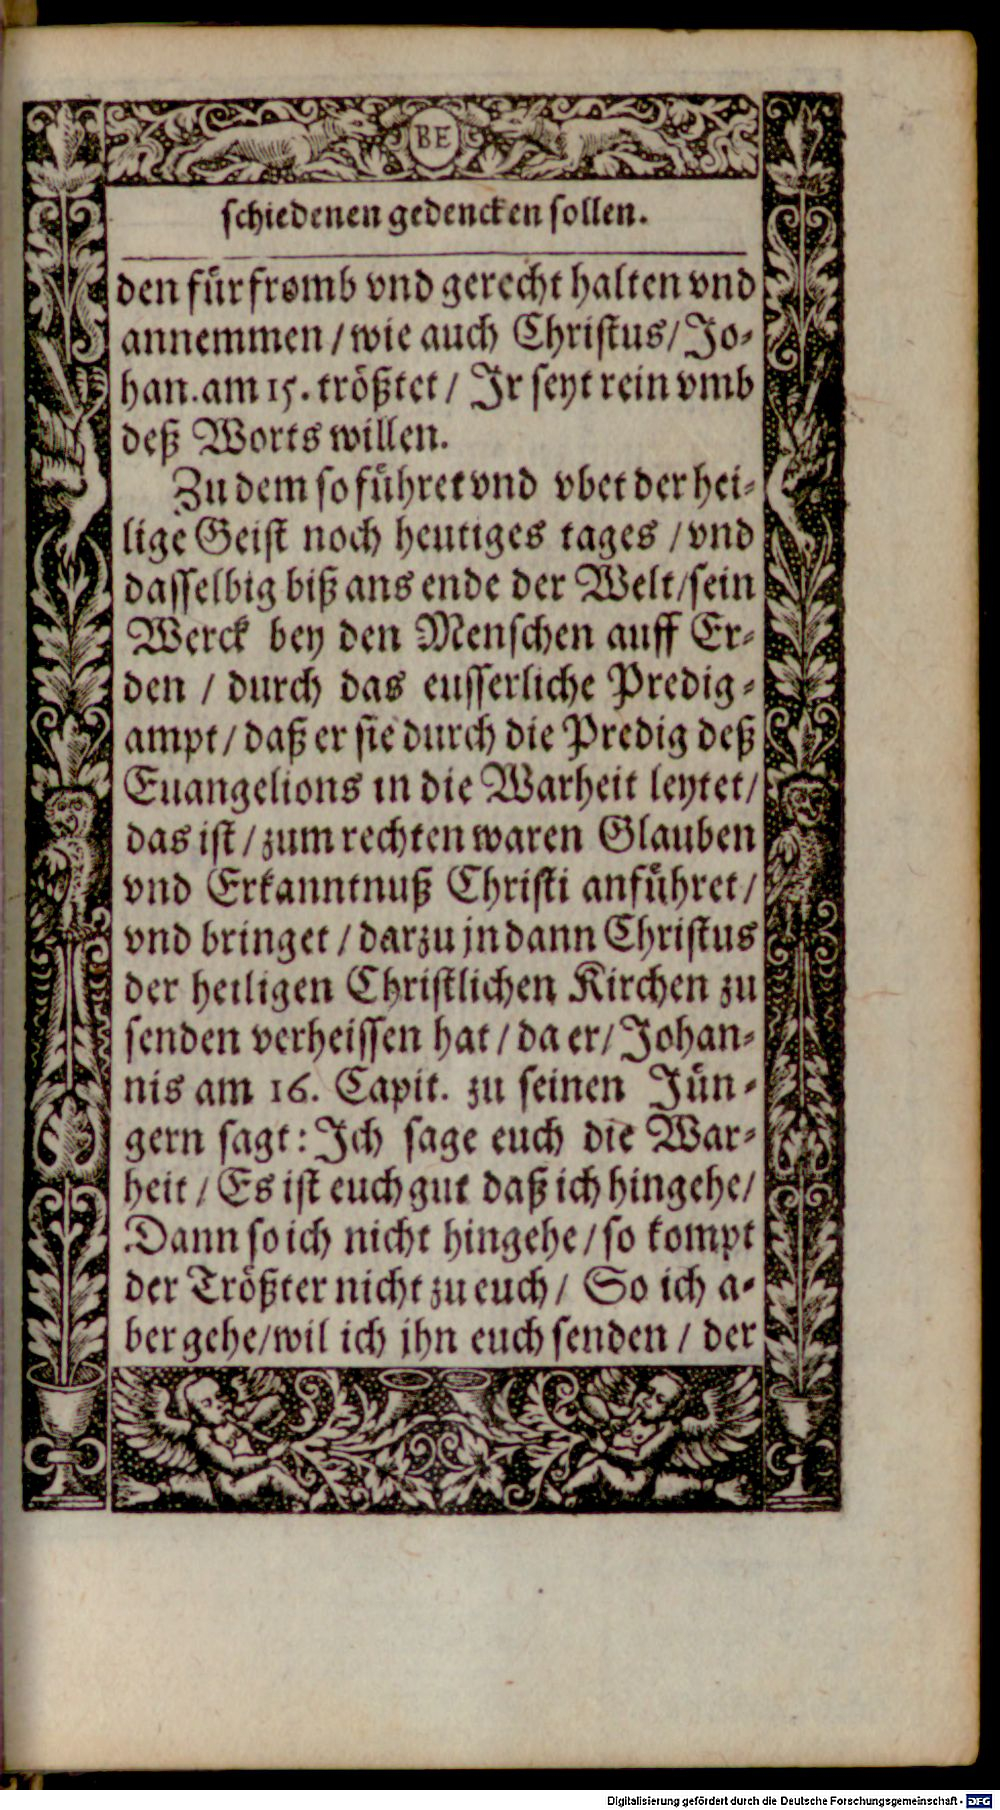 BE
schiedenen gedencken sollen.
den für fromb vnd gerecht halten vnd
annemmen / wie auch Christus / Jo-
han. am 15. trößtet / Jr seyt rein vmb
deß Worts willen.
Zu dem so führet vnd vbet der hei-
lige Geist noch heutiges tages / vnd
dasselbig biß ans ende der Welt / sein
Werck bey den Menschen auff Er-
den / durch das eusserliche Predig-
ampt / daß er sie durch die Predig deß
Euangelions in die Warheit leytet /
das ist / zum rechten waren Glauben
vnd Erkanntnuß Christi anführet /
vnd bringet / darzu jn dann Christus
der heiligen Christlichen Kirchen zu
senden verheissen hat / da er / Johan-
nis am 16. Capit. zu seinen Jün-
gern sagt: Jch sage euch die War-
heit / Es ist euch gut daß ich hingehe /
Dann so ich nicht hingehe / so kompt
der Trößter nicht zu euch / So ich a-
ber gehe / wil ich jhn euch senden / der
Digitalisierung gefördert durch die Deutsche Forschungsgemeinschaft - DFG